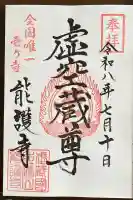 奉拝
令和八年七月十日
虚空蔵尊
全国唯一
能護寺